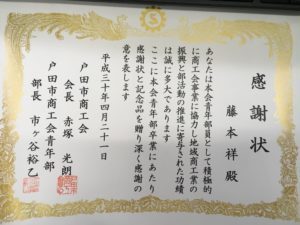 感謝状
藤本祥殿
あなたは本会青年部員として積極的
に商工会事業に協力し地域商工業の
振興と部活動の推進に寄与された功績
は誠に多大であります
ここに本会青年部卒業にあたり
感謝状と記念品を贈り深く感謝の
意を表します
平成三十年四月二十一日
戸田市商工会
会長 赤塚光朗
戸田市商工会青年部
部長 市ヶ谷裕乙